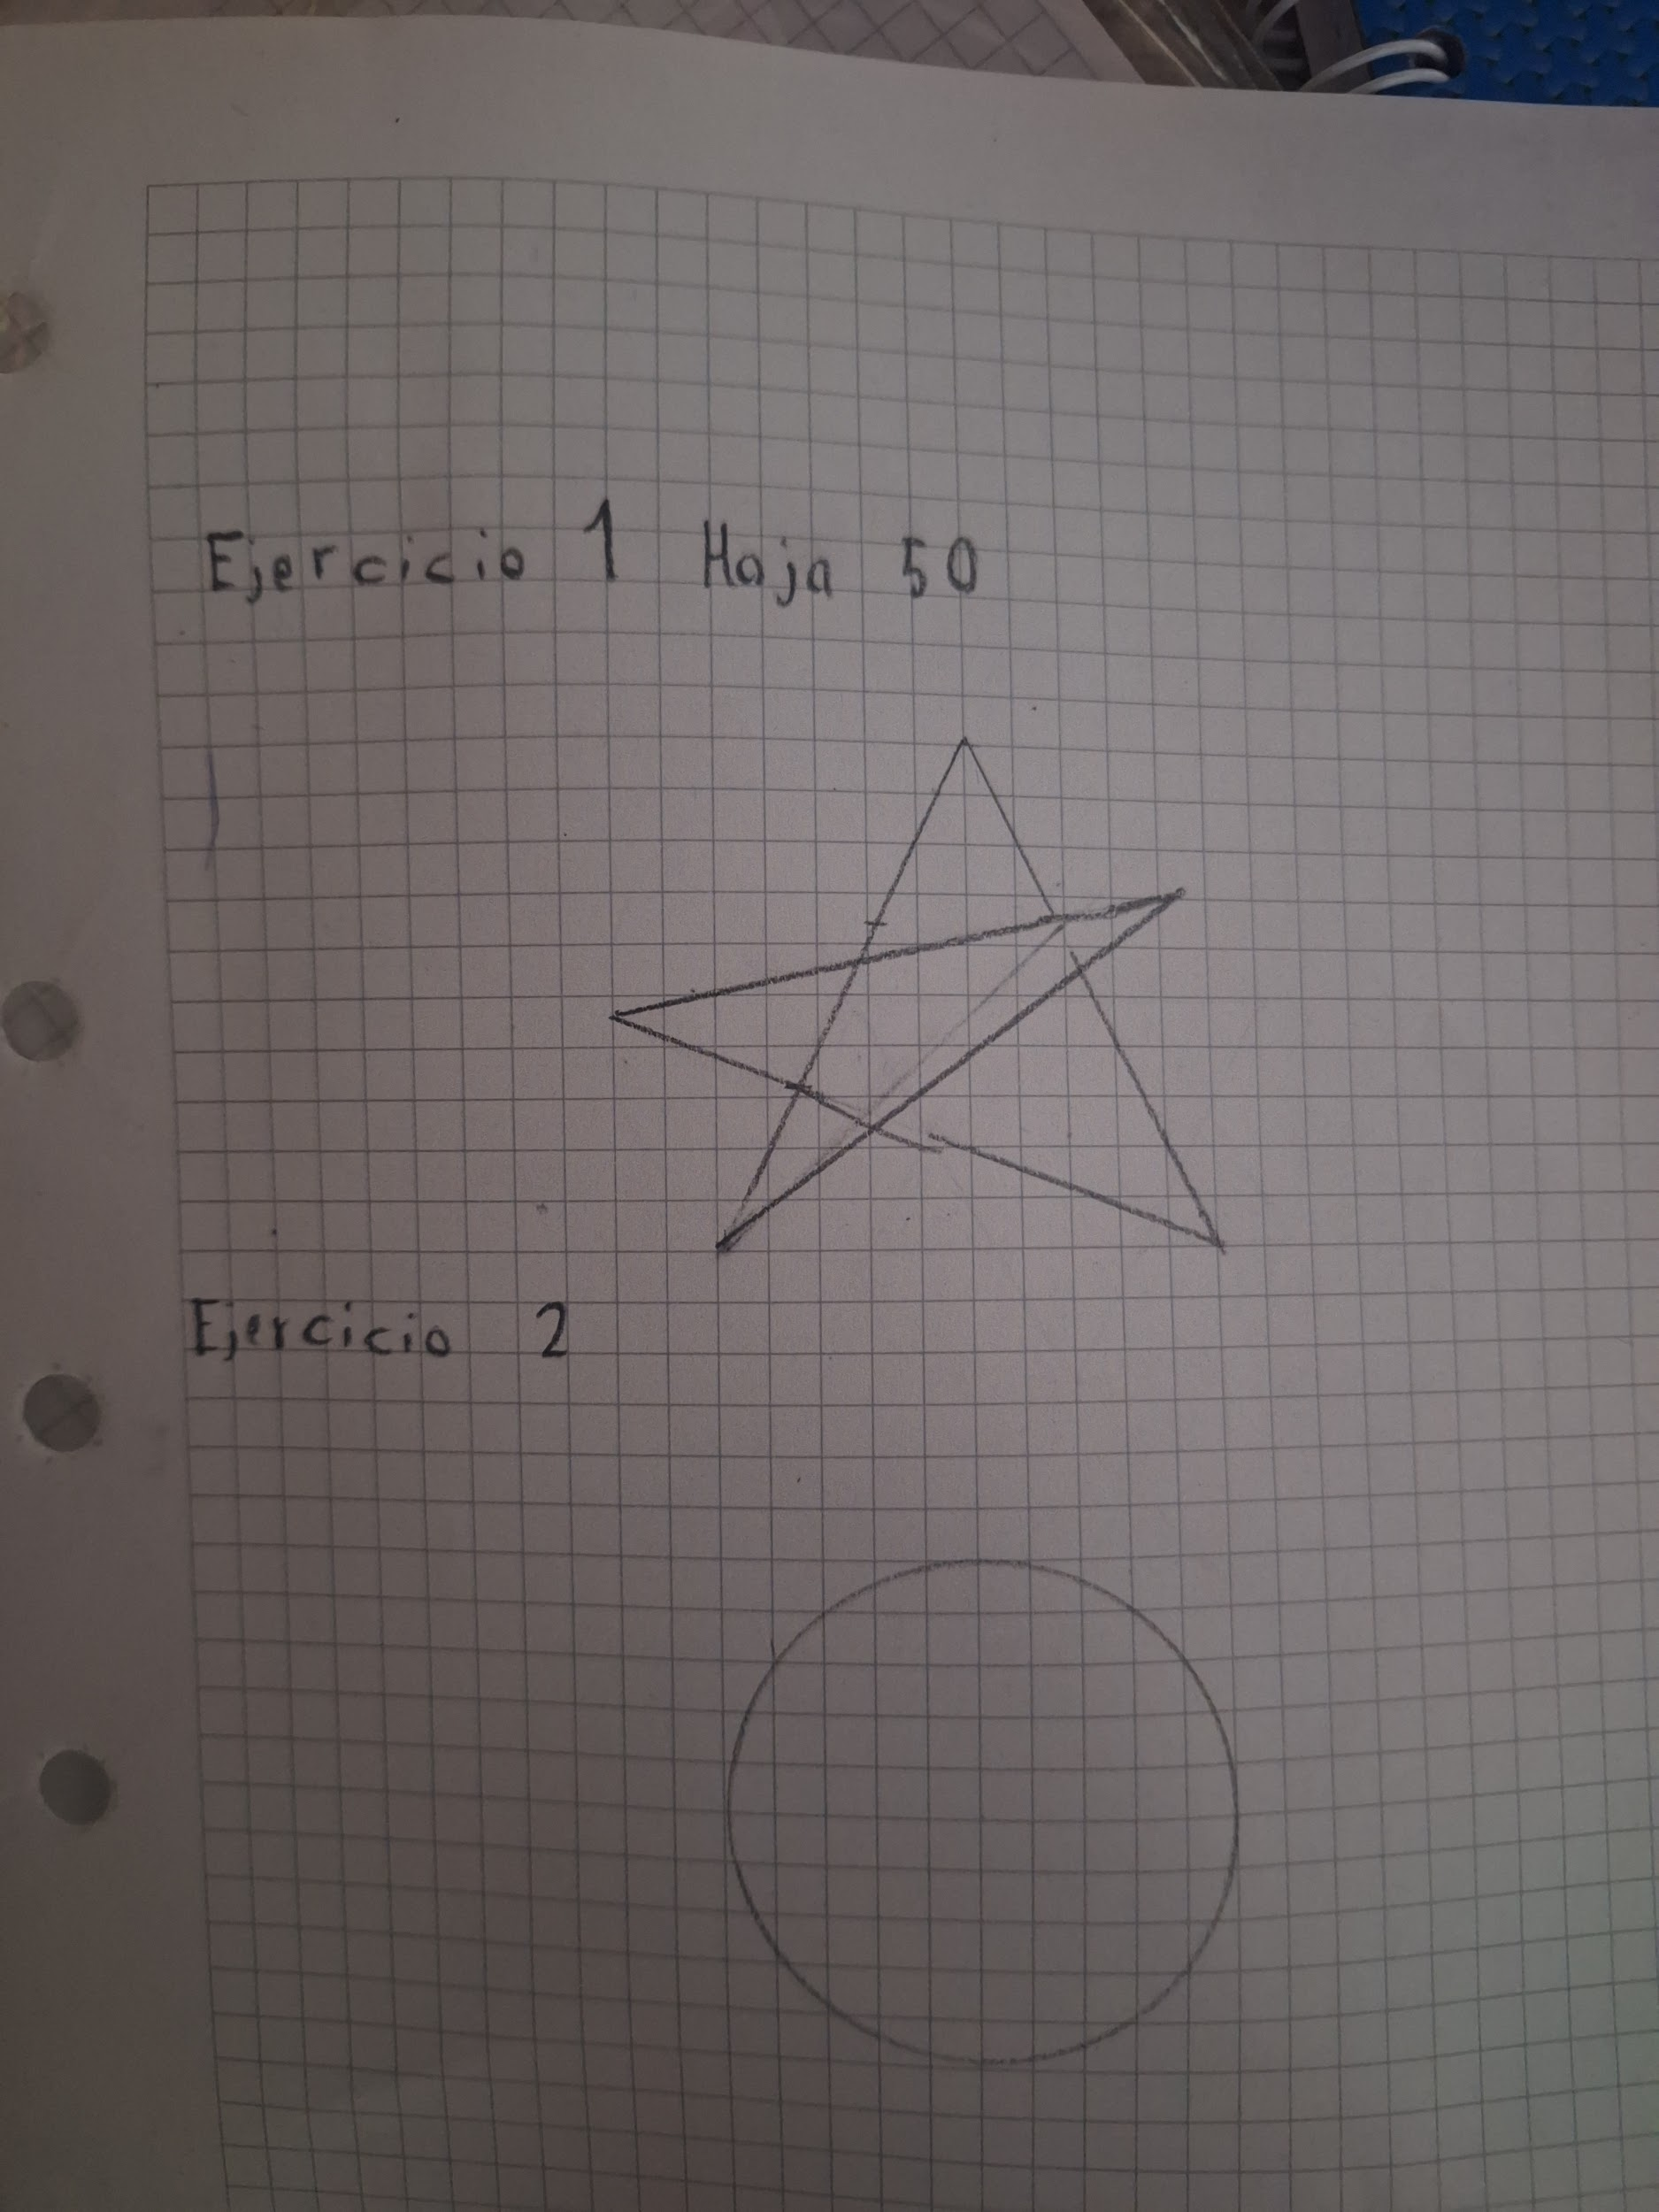 Ejercicio 1 Hoja 50
Ejercicio 2